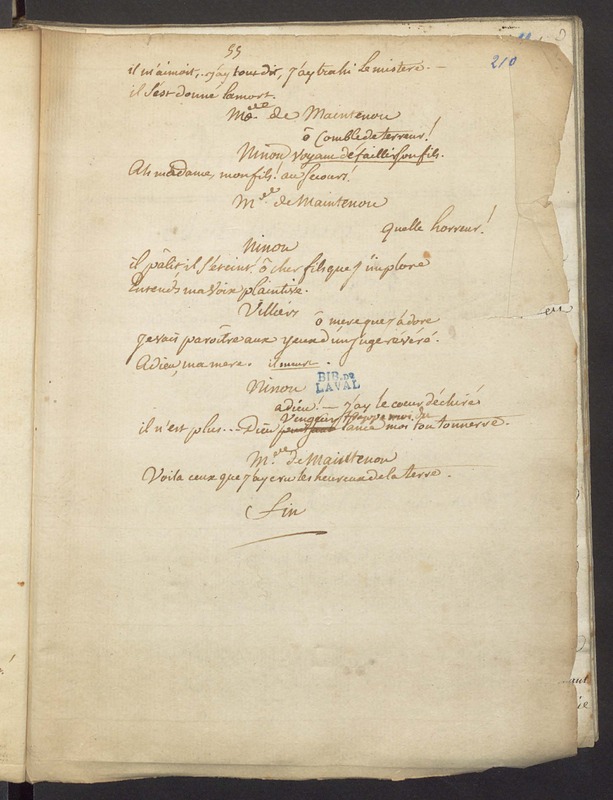 55
210
il m'aimoit, j'ay tout dit, j'ay trahi le mistere. —
il s'est donné la mort.
Me de Maintenon
ô comble de terreur!
Ninon voyant défaillir son fils.
Ah madame, mon fils! au secours!
Melle de Maintenon
quelle horreur!
Ninon
il pâlit, il s'éteint. ô cher fils que j'implore
Entends ma voix plaintive.
Villiers
ô mere que j'adore
je vais paroître aux yeux d'un juge révéré.
Adieu, ma mere. il meurt.
BIB. DE
LAVAL
Ninon
adieu! — j'ay le coeur déchiré
Vengeur frappe moi du
il n'est plus... Dieu lance moi ton tonnerre.
Melle de Maintenon
Voila ceux que j'ay cru les heureux de la terre.
Fin